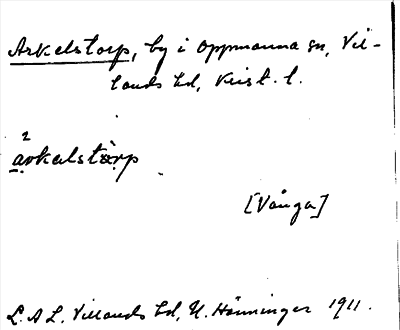 Arkelstorp, by i Oppmanna sn, Vil-
lands hd, Krist. l.
2
arkalstàrp
[Vånga]
L.A.L. Villands hd, N. Hänninger 1911.